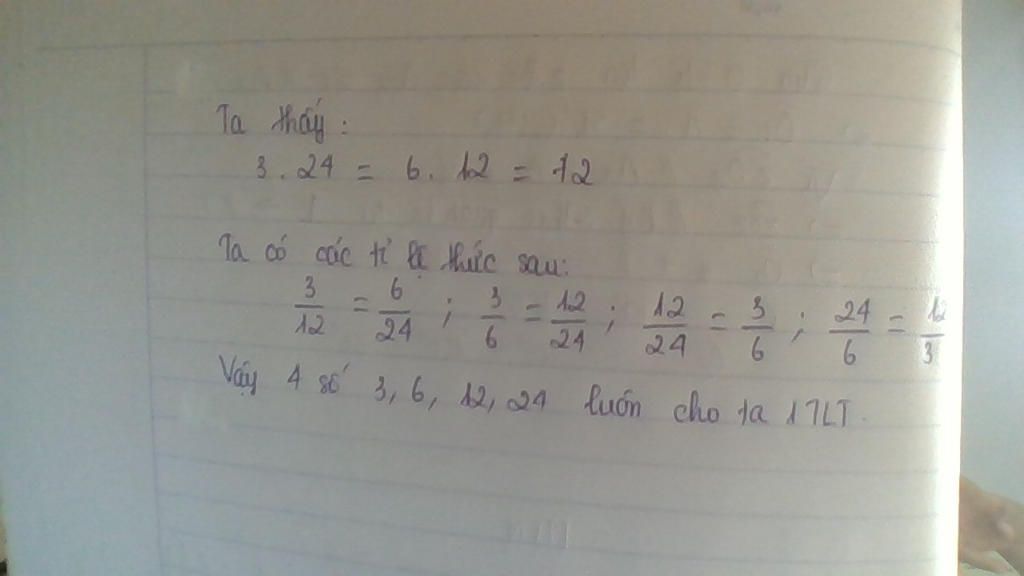 Ta thấy:
3 . 24 = 6 . 12 = 72
Ta có các tỉ lệ thức sau:
3/12 = 6/24 ; 3/6 = 12/24 ; 12/24 = 3/6 ; 24/6 = 12/3
Vậy 4 số 3, 6, 12, 24 luôn cho ta 1 TLT.